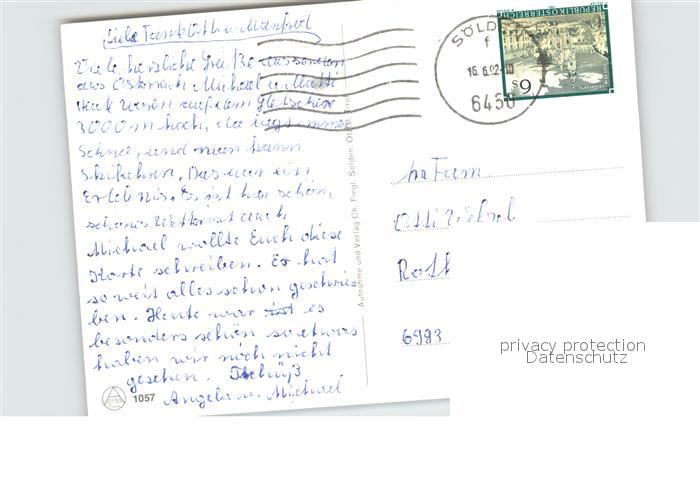 Liebe Tante Otti u. Manfred
Viele herzliche Grüße aus
aus Österreich Michael u. Mutti
auf dem Gletscher
3000 m hoch, da liegt immer
Schnee, und man kann
Skifahren. Das war ein
Erlebnis. Es ist hier schön,
schönes Wetter ist auch
Michael wollte Euch diese
Karte schreiben. Er hat
soweit alles schon geschrie
ben. Heute war es
besonders schön so etwas
haben wir noch nicht
gesehen. Tschüß
Angela u. Michael
1057
Aufnahme und Verlag Ch. Fiegl, Sölden,
SÖLDEN
f
16.6.92-10
6450
REPUBLIK ÖSTERREICH
S 6
An Fam
Otti
Roth
6993
privacy protection
Datenschutz